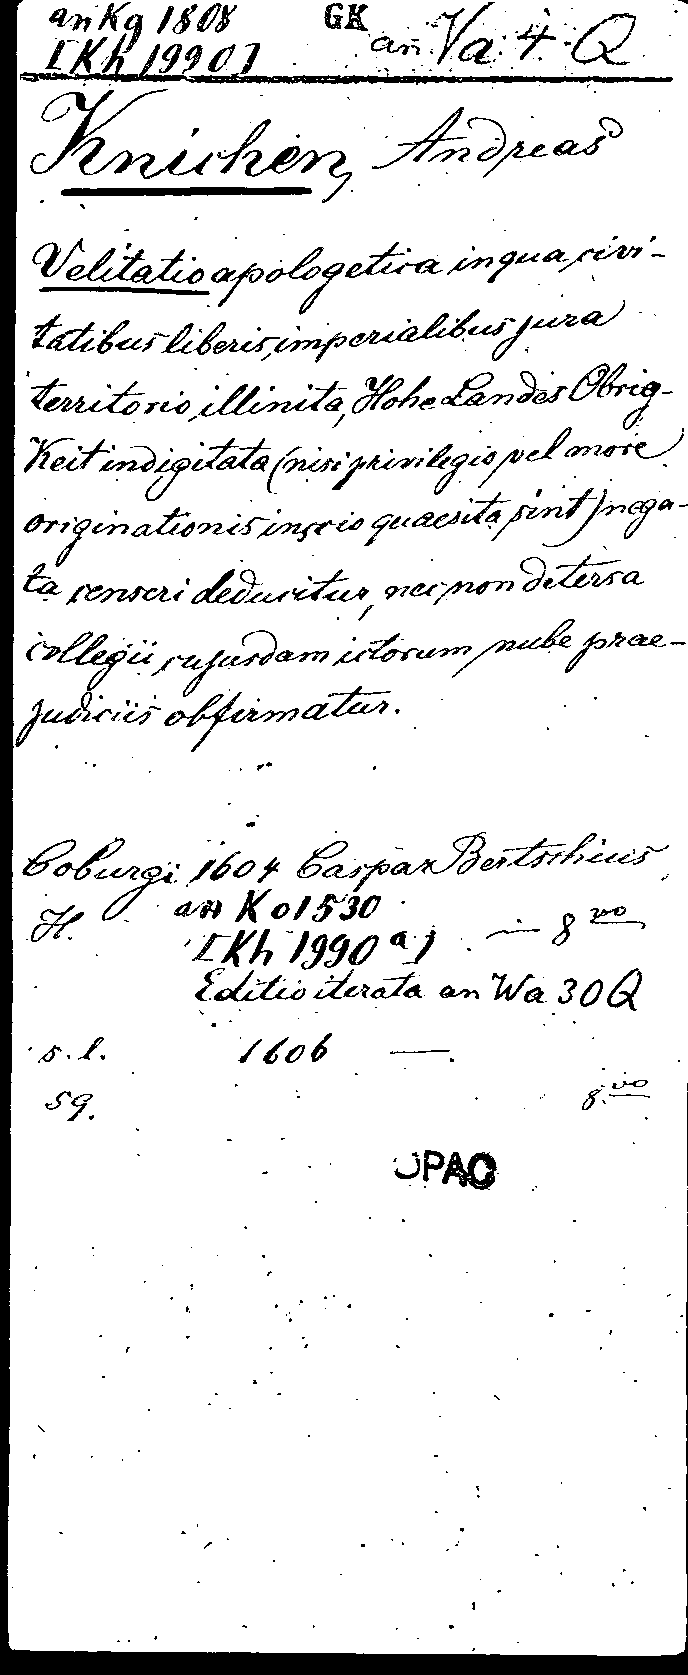 an Kg 1808 GK an Va 4 Q
[Kh 1990]
Knichen, Andreas
Velitatio apologetica in qua civi-
tatibus liberis, imperialibus jura
territorio illinita, Hohe Landes Obrig-
Keit indigitata (nisi privilegio vel more
originationis inscio quaesita sint) nega-
ta censeri deducitur, nec non detersa
collegii cujusdam ictorum nube prae-
judiciis obfirmatur.
Coburgi 1604 Caspar Bertschius
H. an Ko 1530 — 8vo
[Kh 1990 a]
Editio iterata an Wa 30 Q
s. l. 1606 —.
59. 8.vo
OPAC